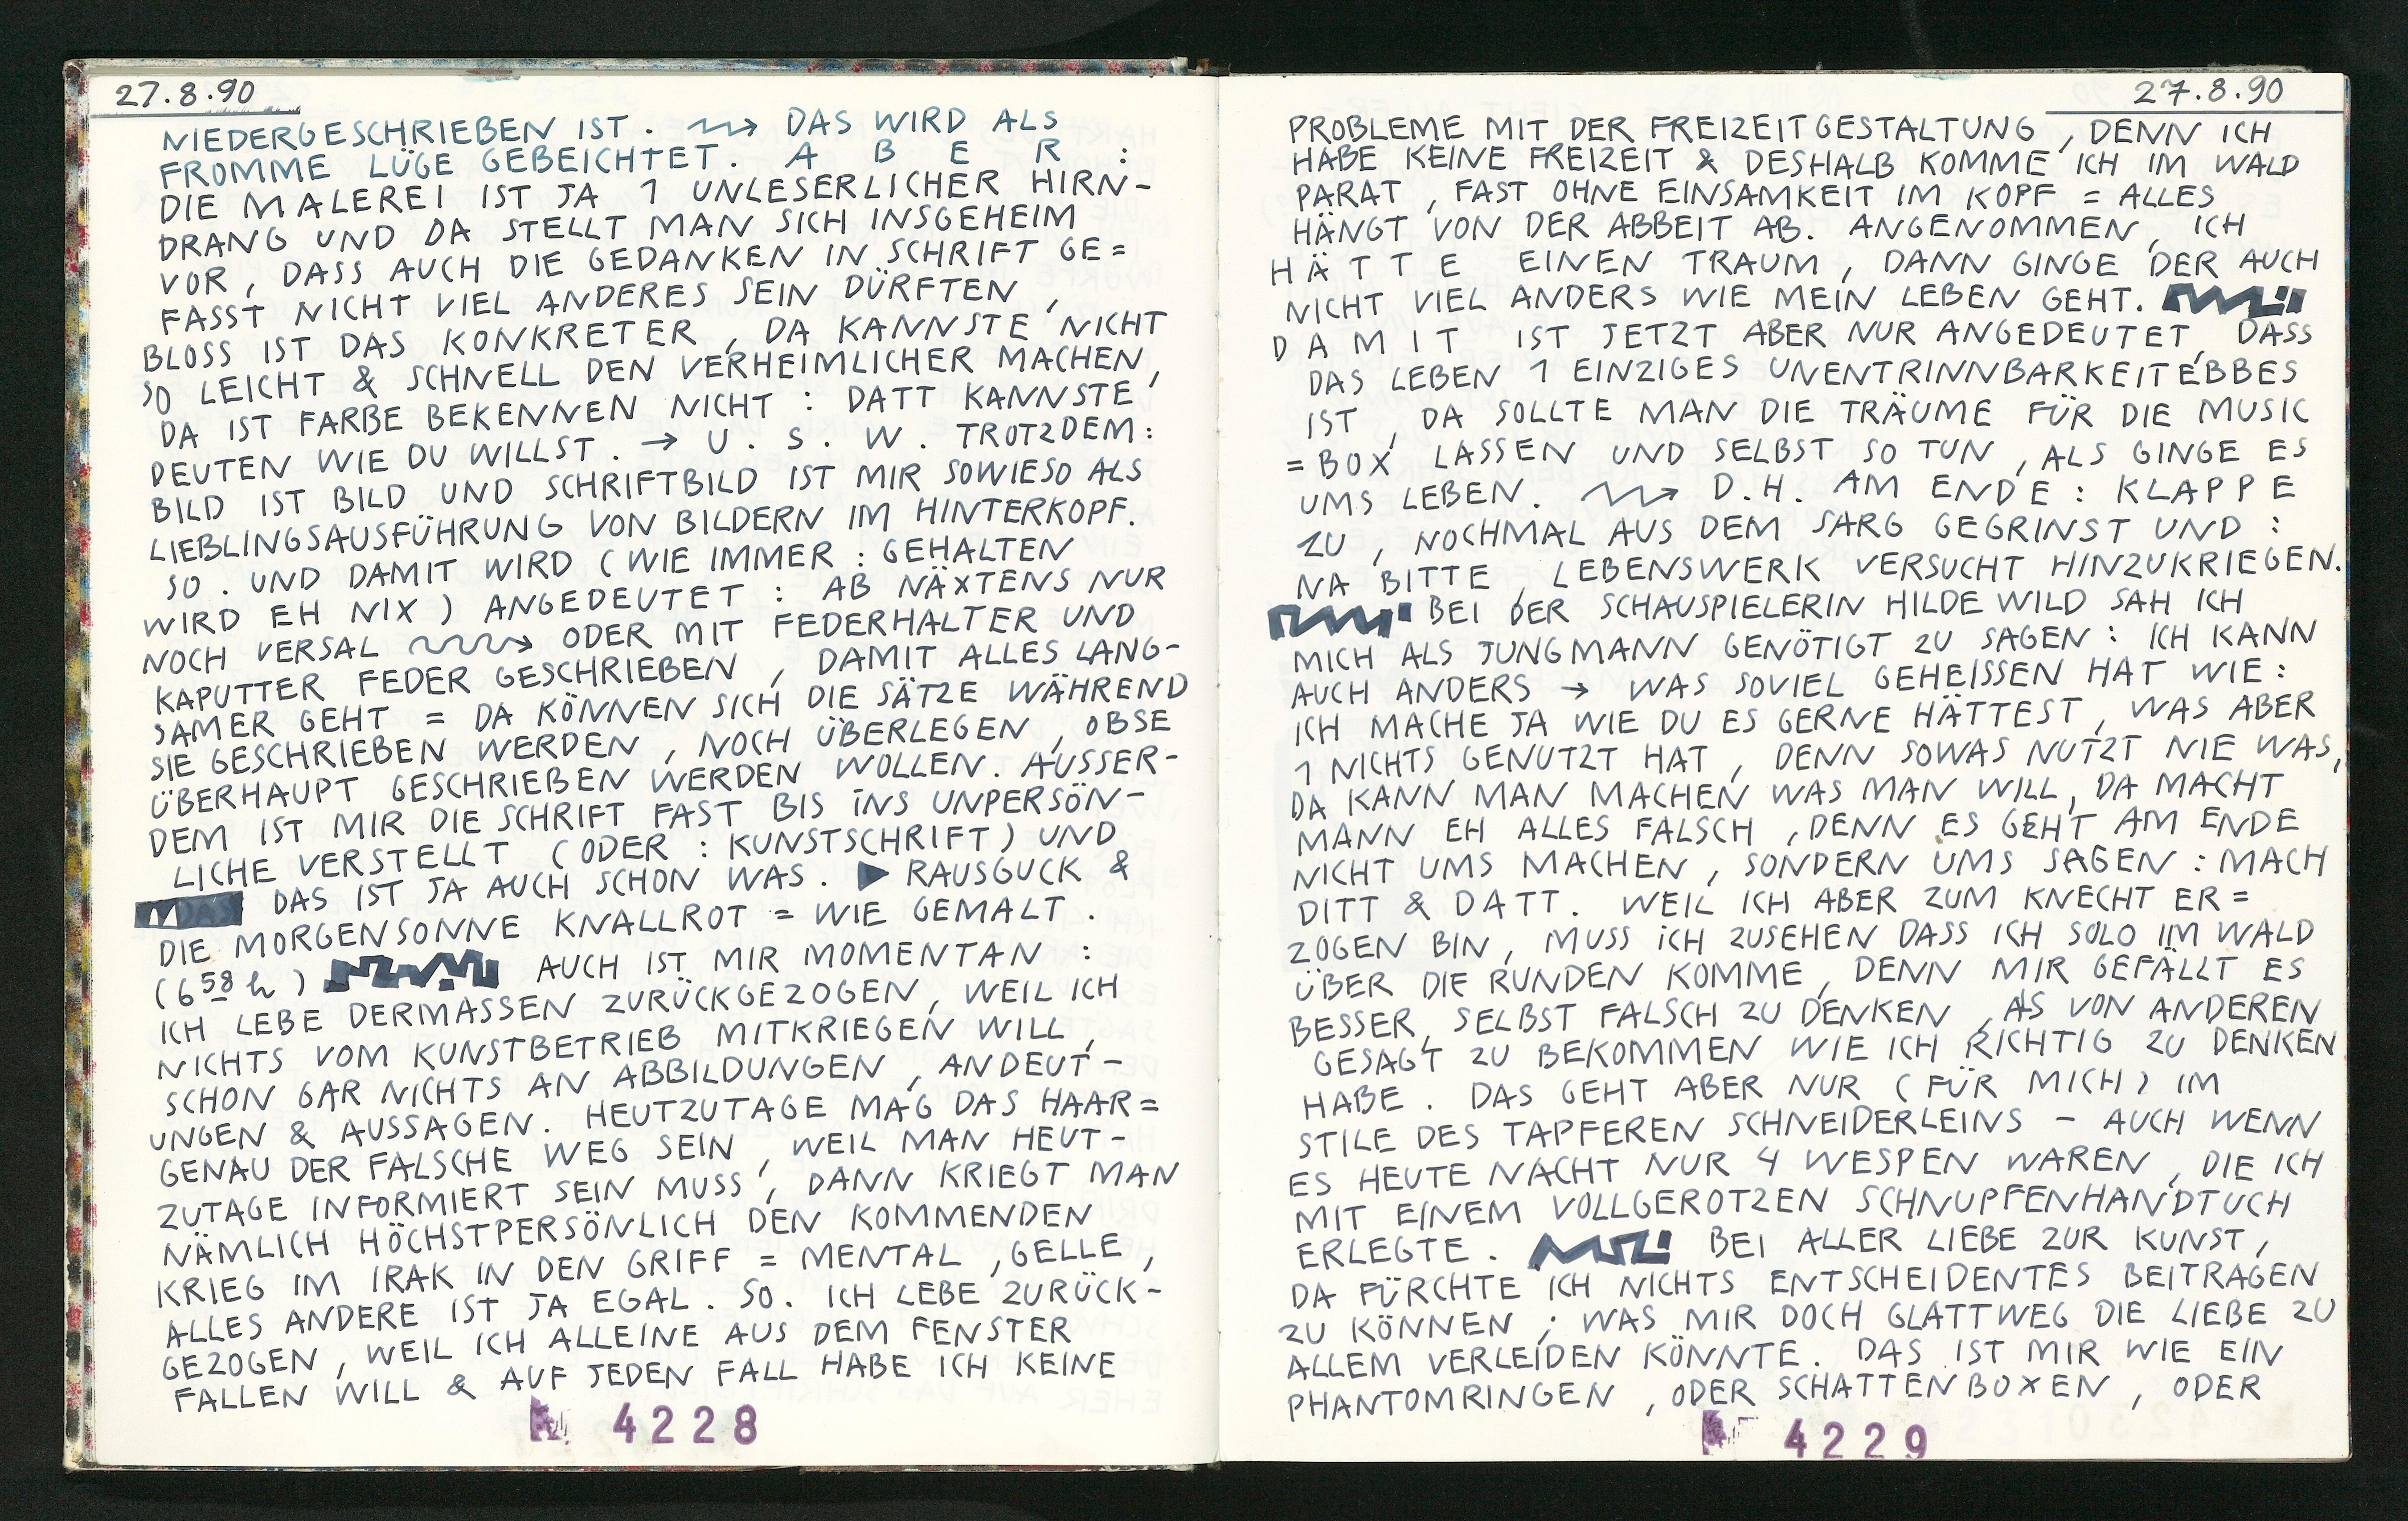 27.8.90
NIEDERGESCHRIEBEN IST. DAS WIRD ALS
FROMME LÜGE GEBEICHTET. A B E R :
DIE MALEREI IST JA 1 UNLESERLICHER HIRN-
DRANG UND DA STELLT MAN SICH INSGEHEIM
VOR, DASS AUCH DIE GEDANKEN IN SCHRIFT GE=
FASST NICHT VIEL ANDERES SEIN DÜRFTEN,
BLOSS IST DAS KONKRETER, DA KANNSTE NICHT
SO LEICHT & SCHNELL DEN VERHEIMLICHER MACHEN,
DA IST FARBE BEKENNEN NICHT : DATT KANNSTE
DEUTEN WIE DU WILLST. → U. S. W. TROTZDEM:
BILD IST BILD UND SCHRIFTBILD IST MIR SOWIESO ALS
LIEBLINGSAUSFÜHRUNG VON BILDERN IM HINTERKOPF.
SO. UND DAMIT WIRD (WIE IMMER : GEHALTEN
WIRD EH NIX) ANGEDEUTET : AB NÄXTENS NUR
NOCH VERSAL ODER MIT FEDERHALTER UND
KAPUTTER FEDER GESCHRIEBEN, DAMIT ALLES LANG-
SAMER GEHT = DA KÖNNEN SICH DIE SÄTZE WÄHREND
SIE GESCHRIEBEN WERDEN, NOCH ÜBERLEGEN, OBSE
ÜBERHAUPT GESCHRIEBEN WERDEN WOLLEN. AUSSER-
DEM IST MIR DIE SCHRIFT FAST BIS INS UNPERSÖN-
LICHE VERSTELLT (ODER : KUNSTSCHRIFT) UND
DAS DAS IST JA AUCH SCHON WAS. ▶ RAUSGUCK &
DIE MORGENSONNE KNALLROT = WIE GEMALT.
(6 58 h) AUCH IST MIR MOMENTAN :
ICH LEBE DERMASSEN ZURÜCKGEZOGEN, WEIL ICH
NICHTS VOM KUNSTBETRIEB MITKRIEGEN WILL,
SCHON GAR NICHTS AN ABBILDUNGEN, ANDEUT-
UNGEN & AUSSAGEN. HEUTZUTAGE MAG DAS HAAR=
GENAU DER FALSCHE WEG SEIN, WEIL MAN HEUT-
ZUTAGE INFORMIERT SEIN MUSS, DANN KRIEGT MAN
NÄMLICH HÖCHSTPERSÖNLICH DEN KOMMENDEN
KRIEG IM IRAK IN DEN GRIFF = MENTAL, GELLE,
ALLES ANDERE IST JA EGAL. SO. ICH LEBE ZURÜCK-
GEZOGEN, WEIL ICH ALLEINE AUS DEM FENSTER
FALLEN WILL & AUF JEDEN FALL HABE ICH KEINE
4228
27.8.90
PROBLEME MIT DER FREIZEITGESTALTUNG, DENN ICH
HABE KEINE FREIZEIT & DESHALB KOMME ICH IM WALD
PARAT, FAST OHNE EINSAMKEIT IM KOPF = ALLES
HÄNGT VON DER ABBEIT AB. ANGENOMMEN, ICH
H Ä T T E EINEN TRAUM, DANN GINGE DER AUCH
NICHT VIEL ANDERS WIE MEIN LEBEN GEHT.
D A M I T IST JETZT ABER NUR ANGEDEUTET, DASS
DAS LEBEN 1 EINZIGES UNENTRINNBARKEITEBBES
IST, DA SOLLTE MAN DIE TRÄUME FÜR DIE MUSIC
=BOX LASSEN UND SELBST SO TUN, ALS GINGE ES
UMS LEBEN. D.H. AM ENDE : KLAPPE
ZU, NOCHMAL AUS DEM SARG GEGRINST UND :
NA BITTE, LEBENSWERK VERSUCHT HINZUKRIEGEN.
BEI DER SCHAUSPIELERIN HILDE WILD SAH ICH
MICH ALS JUNGMANN GENÖTIGT ZU SAGEN : ICH KANN
AUCH ANDERS → WAS SOVIEL GEHEISSEN HAT WIE :
ICH MACHE JA WIE DU ES GERNE HÄTTEST, WAS ABER
1 NICHTS GENUTZT HAT, DENN SOWAS NUTZT NIE WAS,
DA KANN MAN MACHEN WAS MAN WILL, DA MACHT
MANN EH ALLES FALSCH, DENN ES GEHT AM ENDE
NICHT UMS MACHEN, SONDERN UMS SAGEN : MACH
DITT & DATT. WEIL ICH ABER ZUM KNECHT ER=
ZOGEN BIN, MUSS ICH ZUSEHEN DASS ICH SOLO IM WALD
ÜBER DIE RUNDEN KOMME, DENN MIR GEFÄLLT ES
BESSER, SELBST FALSCH ZU DENKEN, ALS VON ANDEREN
GESAGT ZU BEKOMMEN WIE ICH RICHTIG ZU DENKEN
HABE. DAS GEHT ABER NUR (FÜR MICH) IM
STILE DES TAPFEREN SCHNEIDERLEINS – AUCH WENN
ES HEUTE NACHT NUR 4 WESPEN WAREN, DIE ICH
MIT EINEM VOLLGEROTZEN SCHNUPFENHANDTUCH
ERLEGTE. BEI ALLER LIEBE ZUR KUNST,
DA FÜRCHTE ICH NICHTS ENTSCHEIDENTES BEITRAGEN
ZU KÖNNEN ; WAS MIR DOCH GLATTWEG DIE LIEBE ZU
ALLEM VERLEIDEN KÖNNTE. DAS IST MIR WIE EIN
PHANTOMRINGEN, ODER SCHATTENBOXEN, ODER
4229